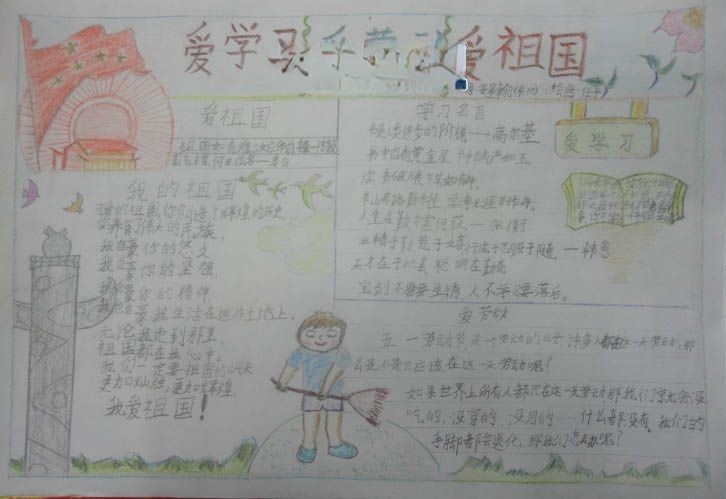 爱学习 爱劳动 爱祖国
爱祖国
我的祖国
可爱的祖国,你创造了辉煌的历史,
你养育了伟大的民族。
我自豪你的悠久,
我自豪你的坚强,
我自豪你的精神,
我自豪我生活在这片土地上。
无论我走到那里,
祖国都在我心中。
我们一定要祖国的明天
更加灿烂,更加辉煌。
我爱祖国!
学习名言
书是人类进步的阶梯——高尔基
书中自有黄金屋 书中自有颜如玉。
读书破万卷下笔如有神。
书山有路勤为径 学海无涯苦作舟。
人生在勤不索何获。——张衡
业精于勤荒于嬉行成于思毁于随。——韩愈
天才在于积累 聪明在勤奋
宝剑不磨要生锈 人不学要落后。
爱学习
爱劳动
五一劳动节是一个劳动的日子,许多人都在这一天劳动,那
么是不是只应该在这一天劳动呢?
如果世界上所有人都只在这一天劳动那我们京尤会没
吃的,没穿的,没用的……什么都没有,我们的
手脚都会退化,那我们怎么办呢?